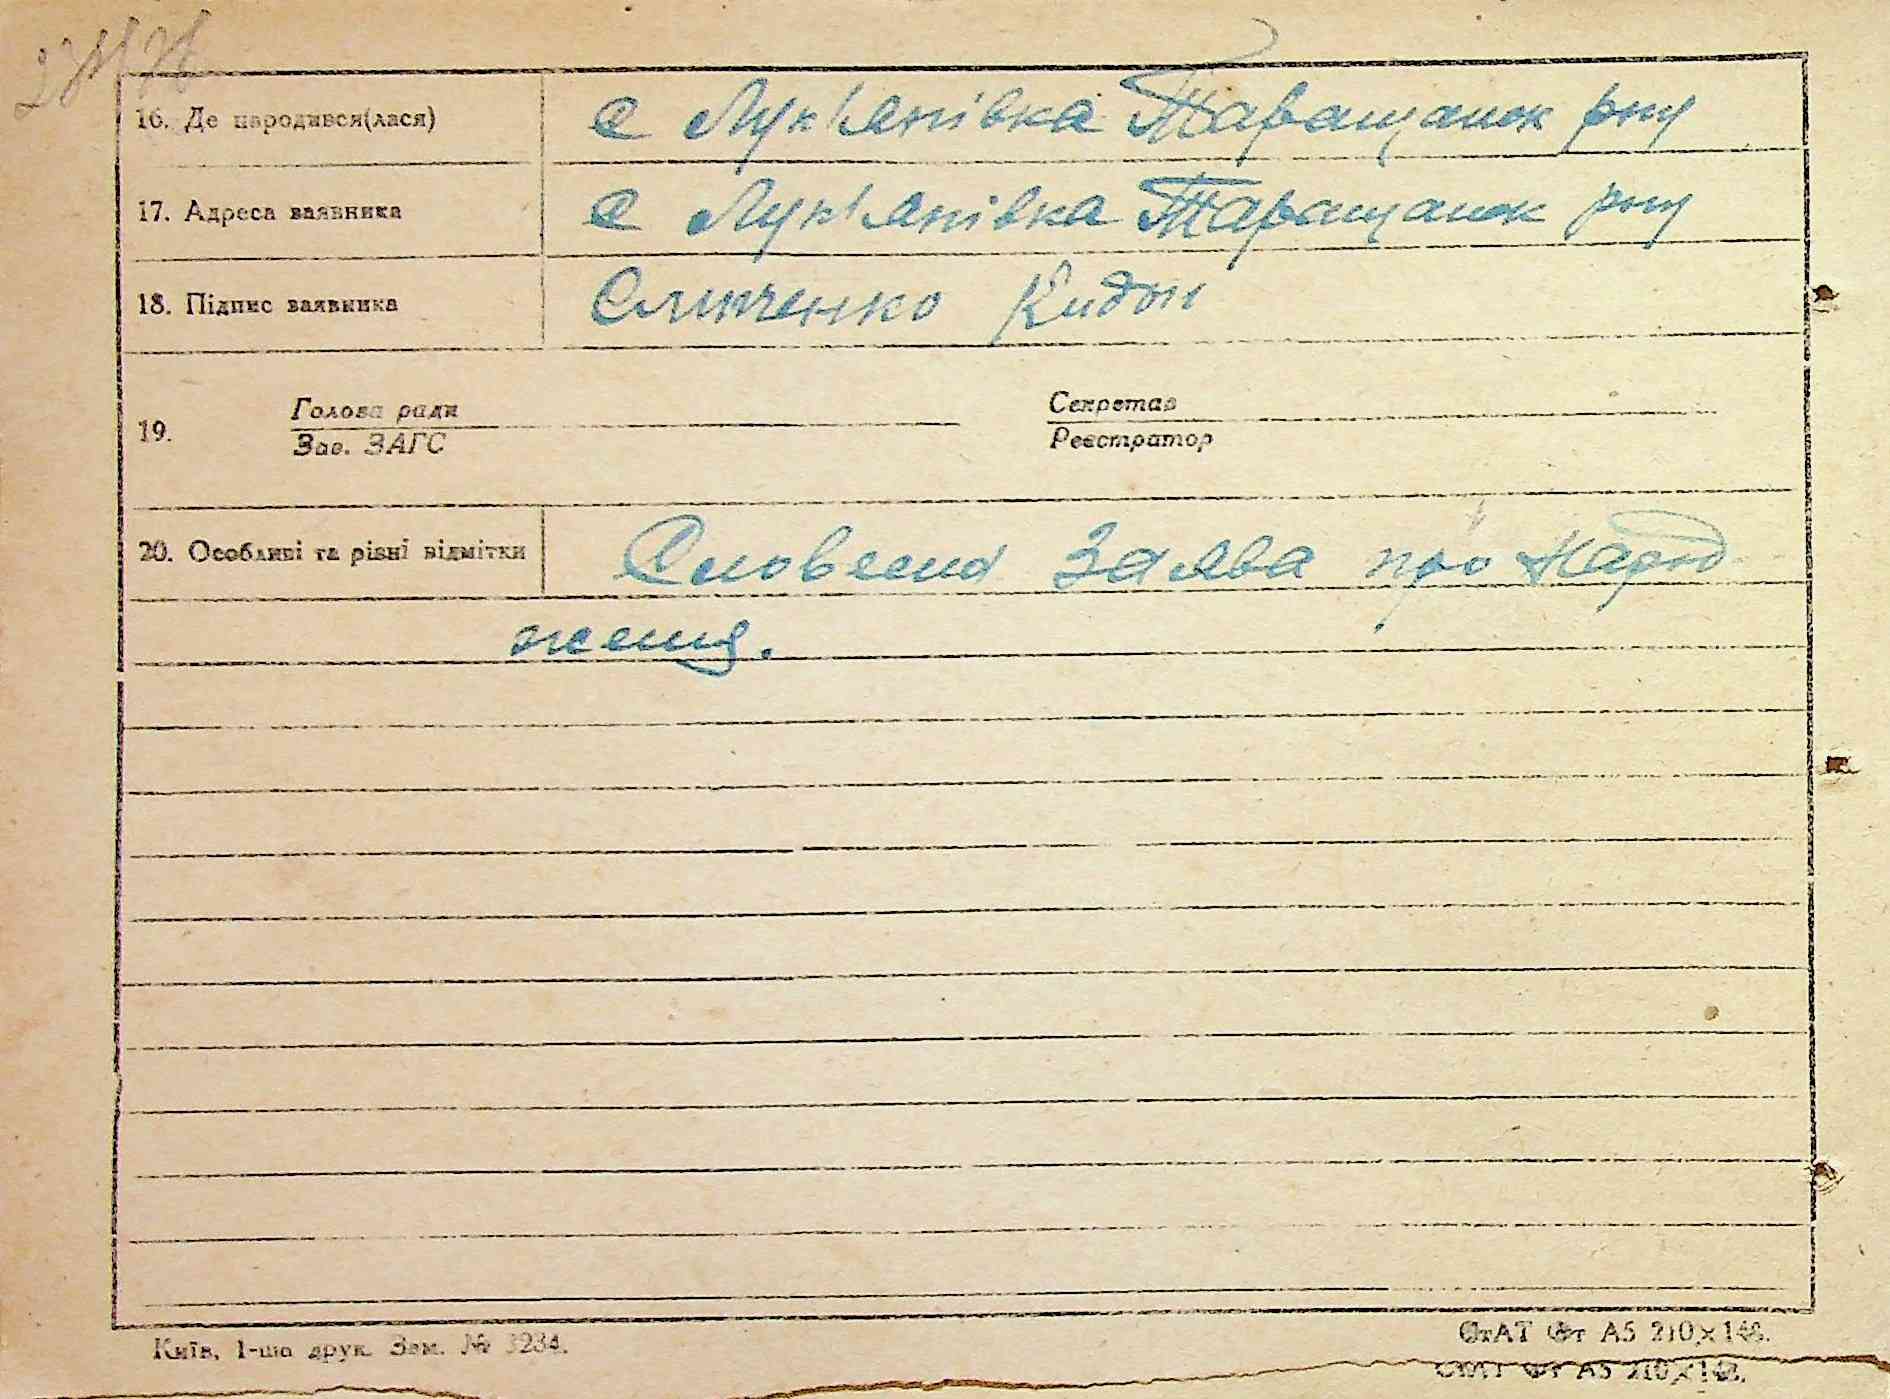 16. Де народився(лася) с Лук'янівка Таращанск рну
17. Адреса заявника с Лук'янівка Таращанск рну
18. Підпис заявника
19. Голова ради Секретар
Зав. ЗАГС Реєстратор
20. Особливі та різні відмітки Словесна Заява про Народ
ження.
Київ, 1-ша друк. Зам. № 3234.
СтАТ Фт А5 210×148.
СтАТ Фт А5 210×148.